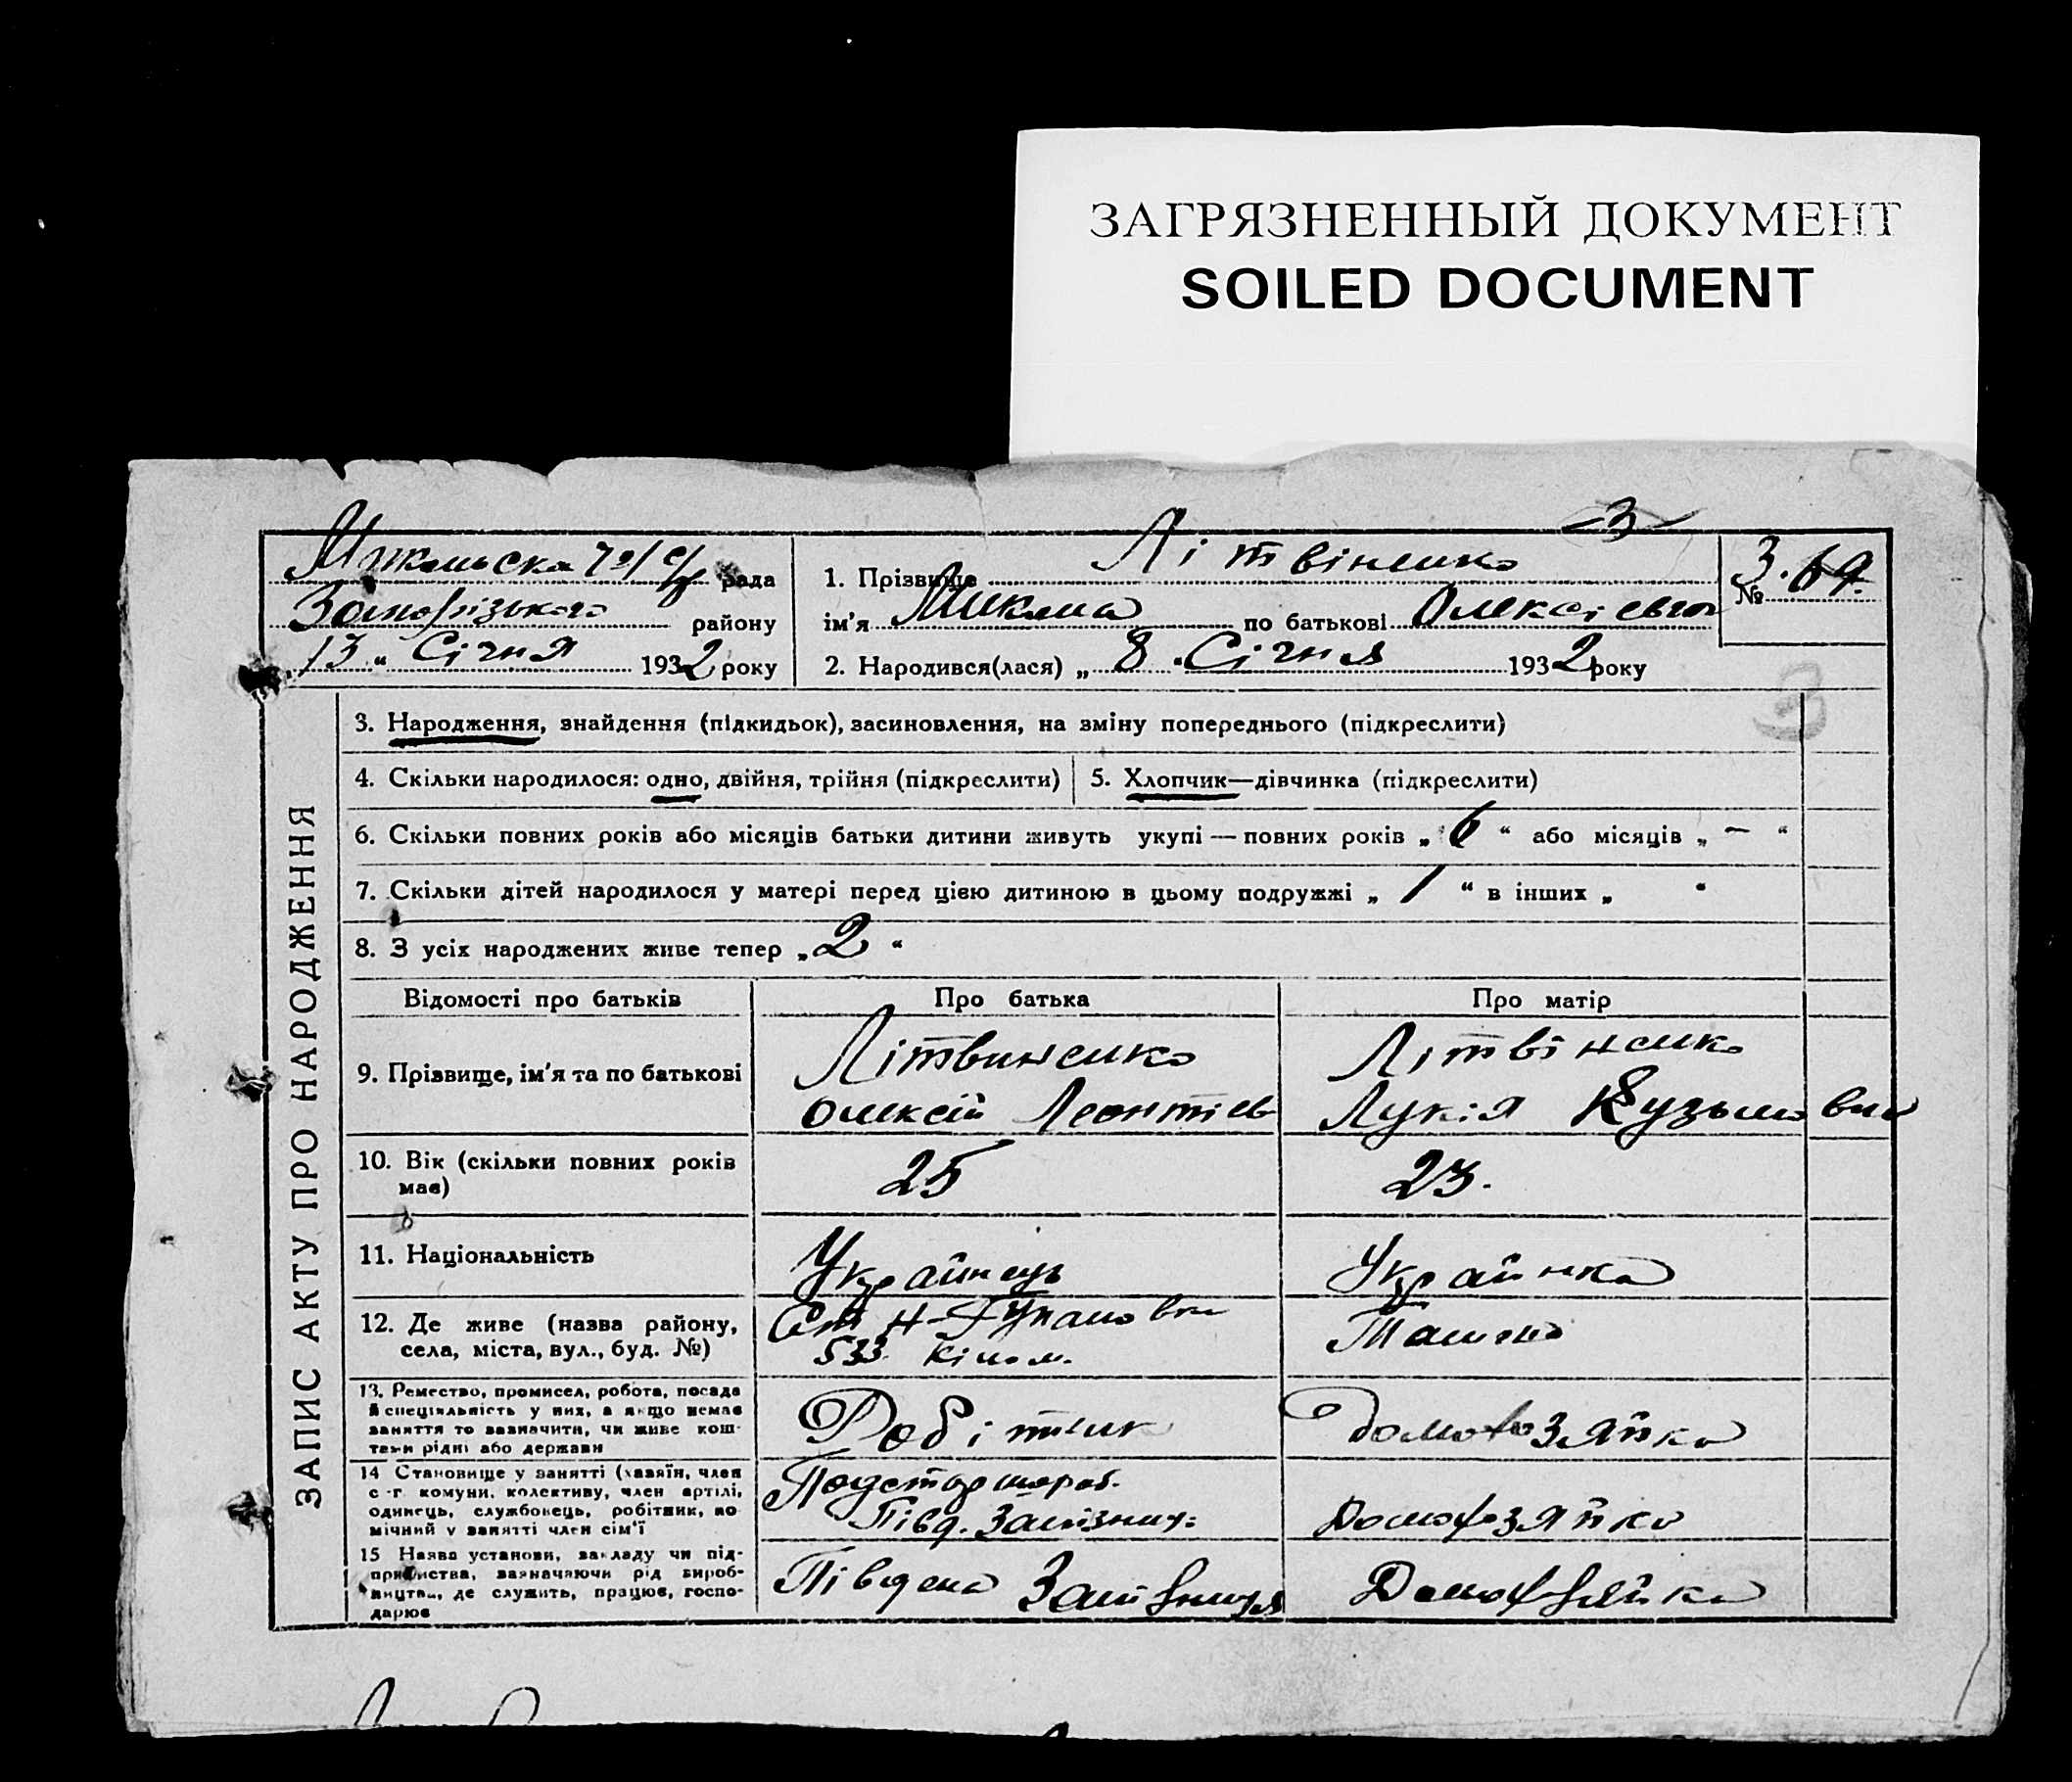 ЗАГРЯЗНЕННЫЙ ДОКУМЕНТ
SOILED DOCUMENT
3
рада
1. Прізвище Літвіненко
№ 3. 69.
району
ім'я Микола по батькові Олексієвич
13 „ Січня 1932 року
2. Народився(лася) „ 8 " Січня 1932 року
3
ЗАПИС АКТУ ПРО НАРОДЖЕННЯ
3. Народження, знайдення (підкидьок), засиновлення, на зміну попереднього (підкреслити)
4. Скільки народилося: одно, двійня, трійня (підкреслити)
5. Хлопчик—дівчинка (підкреслити)
6. Скільки повних років або місяців батьки дитини живуть укупі — повних років „ 6 “ або місяців „ – “
7. Скільки дітей народилося у матері перед цією дитиною в цьому подружжі „ 1 “ в інших „ “
8. З усіх народжених живе тепер „ 2 “
Відомості про батьків
Про батька
Про матір
9. Прізвище, ім'я та по батькові
Літвиненко
Олексій Леонтіев
Літвіненко
Лукія Кузьмовна
10. Вік (скільки повних років
має)
25
23.
11. Національність
Українець
Українка
12. Де живе (назва району,
села, міста, вул., буд. №)
533 кілом.
13. Ремество, промисел, робота, посада
й спеціяльність у них, а якщо немає
заняття то зазначити, чи живе кош-
тами рідні або держави
Робітник
Домохозяйка
14 Становище у занятті (хазяїн, член
с -г. комуни, колективу, член артілі,
одинець, службовець, робітник, по
мічний у занятті член сім'ї
Півд. Залізниц:
Домохозяйка
15 Назва установи, закладу чи під-
приємства, зазначаючи рід вироб-
ництва, де служить, працює, госпо-
дарює
Південа Залізниця
Домохозяйка